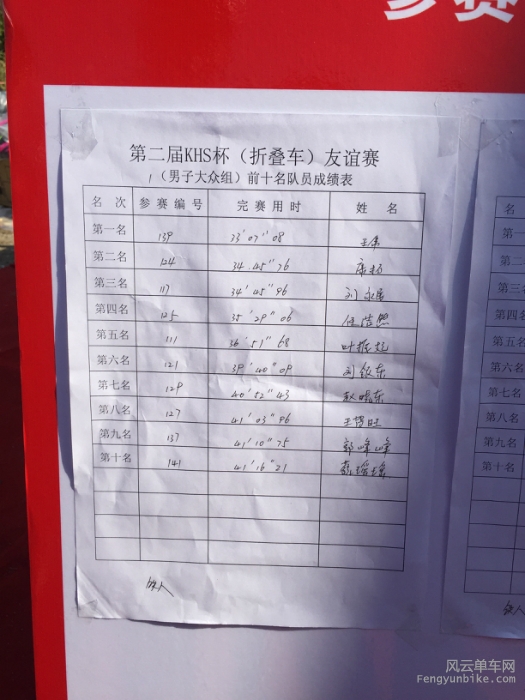 参赛
第二届KHS杯（折叠车）友谊赛
（男子大众组）前十名队员成绩表
名 次 参 赛 编 号 完 赛 用 时 姓 名
第一名 139 33'07"08
第二名 124 34'45"76
第三名 117 34'45"96 刘
第四名 125 35'29"06 任浩然
第五名 111 36'51"68 叶振
第六名 121 39'40"09 刘
第七名 129 40'52"43 赵
第八名 127 41'03"96 王 旺
第九名 137 41'10"75 郭峰峰
第十名 141 41'16"21
名
第一
第二名
第三名
第四名
第五名
第六名
第七名
第八名
第九名
第十名
风云单车网
Fengyunbike.com